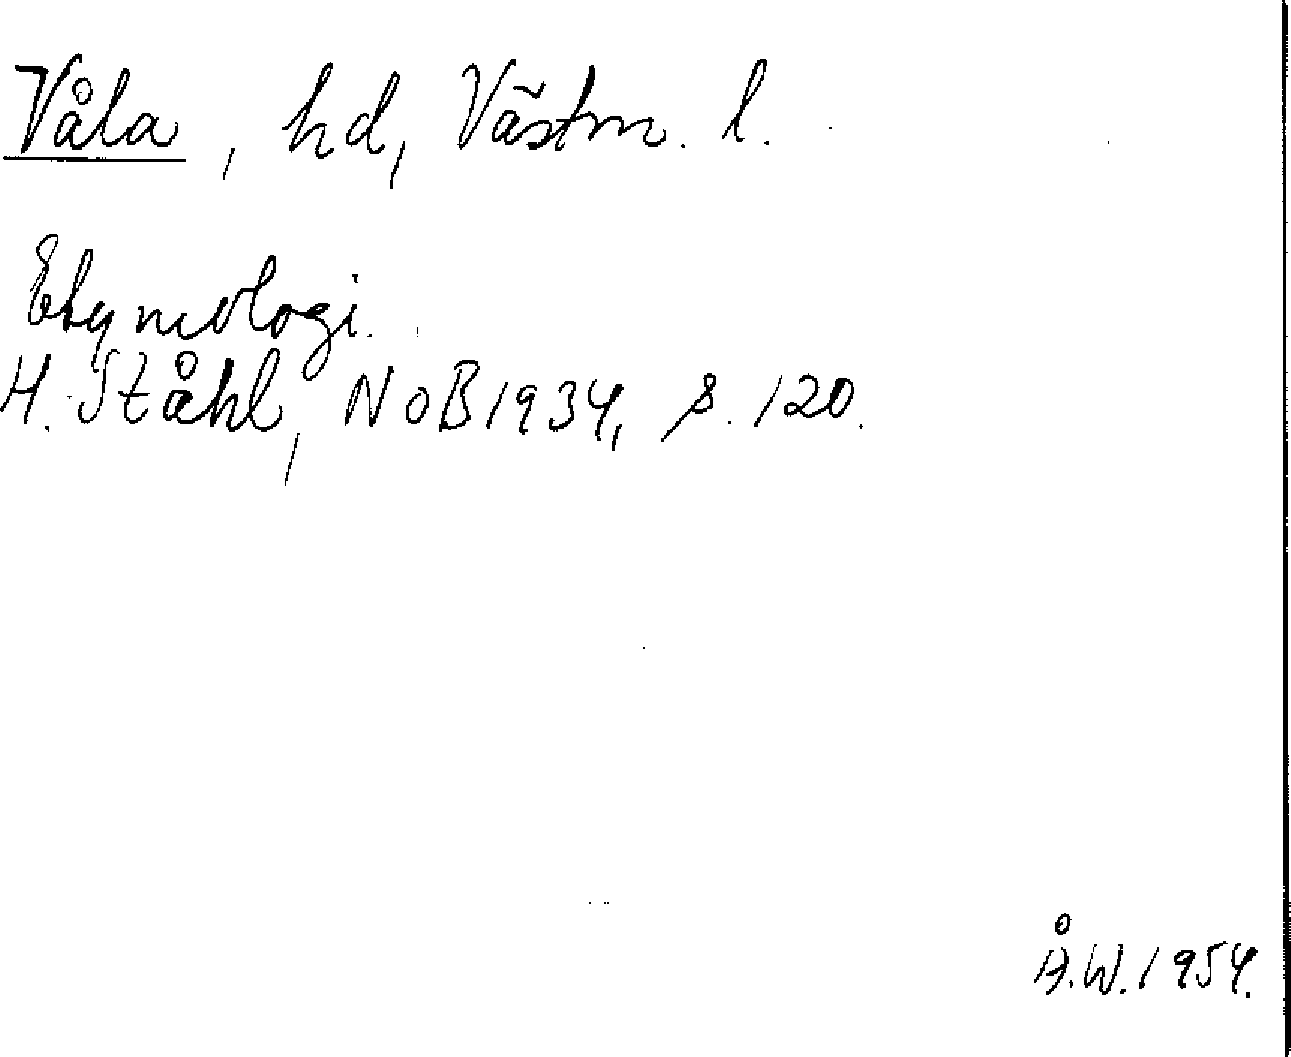 Våla, hd, Västm. l.
Etymologi.
H. Ståhl, NoB 1934, s. 120.
Å.W. 1954.